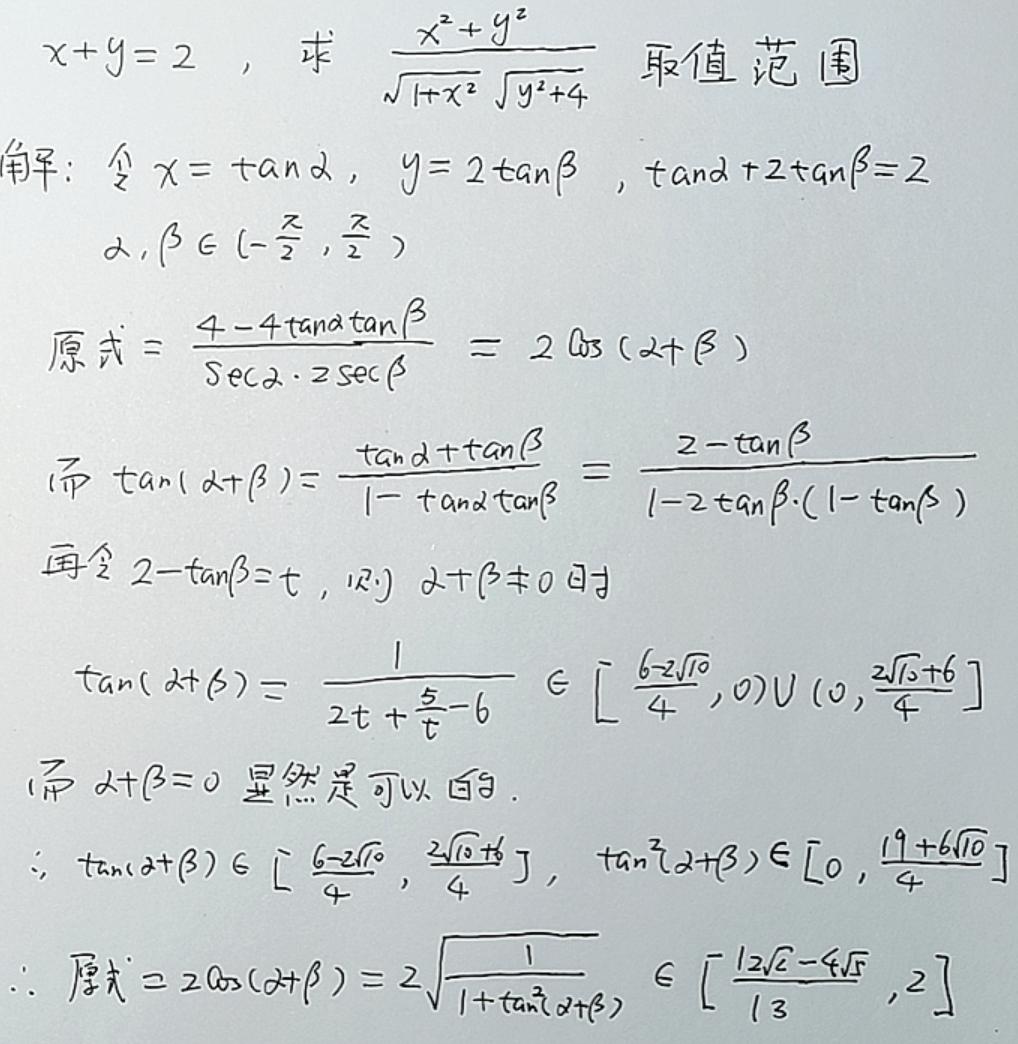 x+y=2 , 求 \frac{x²+y²}{\sqrt{1+x²} \sqrt{y²+4}} 取值范围
解: 令 x = tanα, y = 2tanβ , tanα+2tanβ=2
α,β ∈ (-\frac{π}{2}, \frac{π}{2})
原式 = \frac{4-4tanαtanβ}{secα·2secβ} = 2cos(α+β)
而 tan(α+β) = \frac{tanα+tanβ}{1-tanαtanβ} = \frac{2-tanβ}{1-2tanβ·(1-tanβ)}
再令 2-tanβ=t, 则 α+β≠0 时
tan(α+β) = \frac{1}{2t+\frac{5}{t}-6} ∈ [\frac{6-2\sqrt{10}}{4}, 0)∪(0, \frac{2\sqrt{10}+6}{4}]
而 α+β=0 显然是可以的.
∴ tan(α+β) ∈ [\frac{6-2\sqrt{10}}{4}, \frac{2\sqrt{10}+6}{4}], tan²(α+β) ∈ [0, \frac{19+6\sqrt{10}}{4}]
∴ 原式 = 2cos(α+β) = 2\sqrt{\frac{1}{1+tan²(α+β)}} ∈ [\frac{12\sqrt{2}-4\sqrt{5}}{13}, 2]